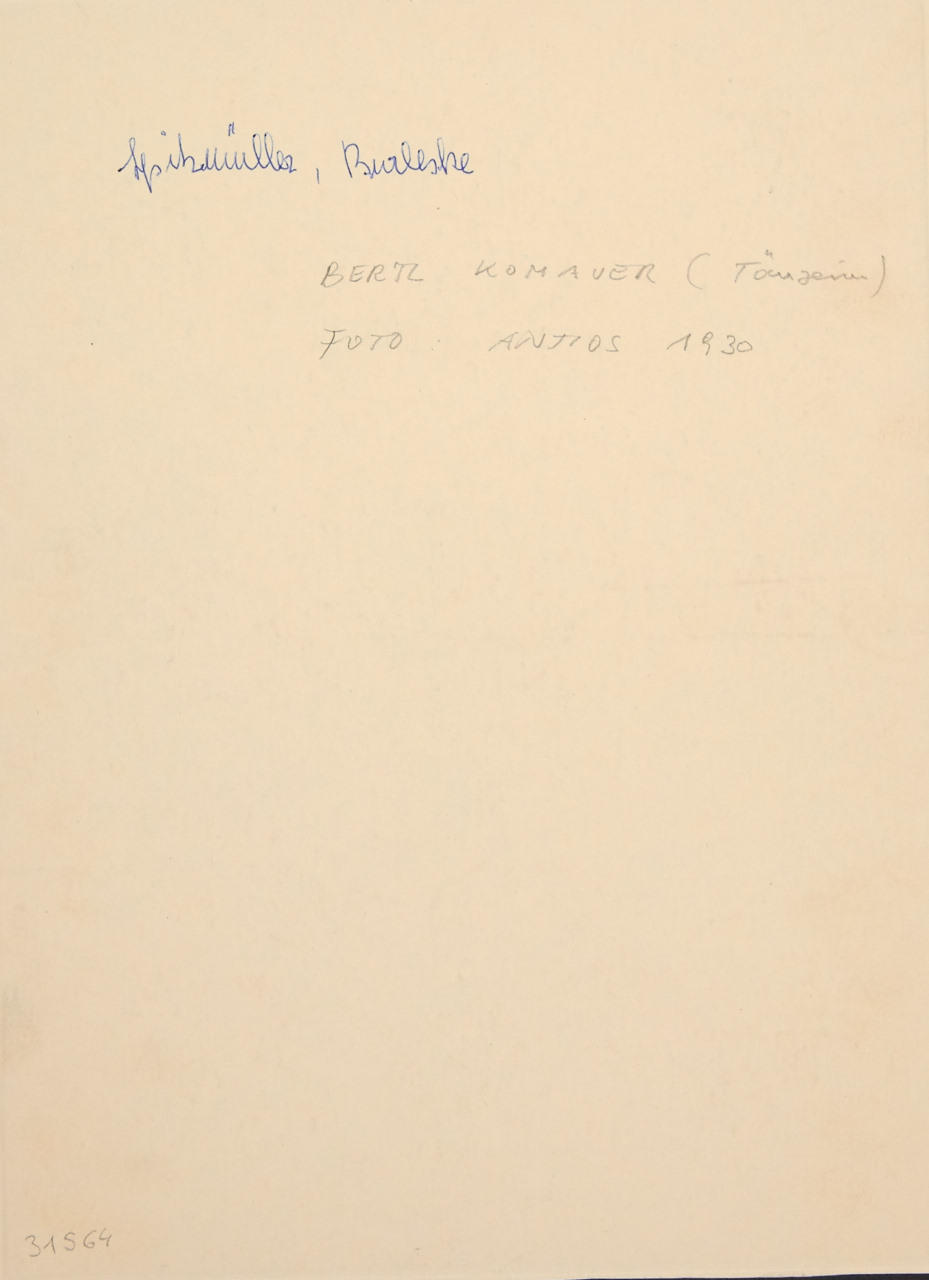 Spitzmüller, Burleske
BERTL KOMAUER (Tänzerin)
FOTO: ANTIOS 1930
31564